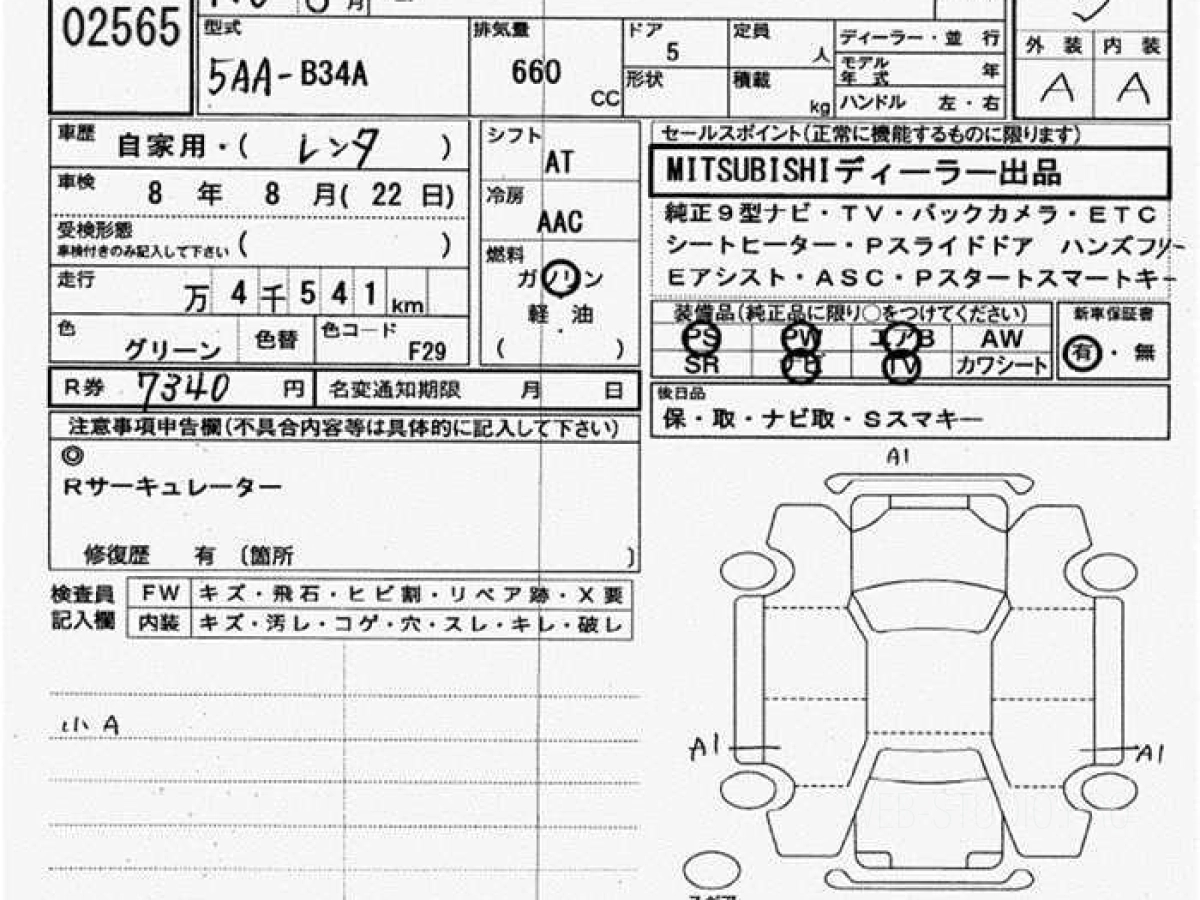 02565
型式 5AA-B34A
排気量 660 CC
ドア 5
形状
定員 人
積載 kg
ディーラー・並 行
モデル年式 年
ハンドル 左・右
外 装 内 装
A A
車歴 自家用・( レンタ )
車検 8 年 8 月( 22 日)
受検形態
車検付きのみ記入して下さい ( )
走行 万 4 千 5 4 1 km
色 グリーン 色替 色コード F29
シフト AT
冷房 AAC
燃料
ガソリン
軽 油
( )
セールスポイント(正常に機能するものに限ります)
MITSUBISHIディーラー出品
純正9型ナビ・TV・バックカメラ・ETC
シートヒーター・Pスライドドア ハンズフリー
Eアシスト・ASC・Pスタートスマートキー
装備品(純正品に限り○をつけてください)
PS PW エアB AW
SR ナビ TV カワシート
新車保証書
有・無
R券 7340 円 名変通知期限 月 日
後日品
保・取・ナビ取・Sスマキー
注意事項申告欄(不具合内容等は具体的に記入して下さい)
◎
Rサーキュレーター
修復歴 有 〔箇所 〕
検査員記入欄
FW キズ・飛石・ヒビ割・リペア跡・X要
内装 キズ・汚レ・コゲ・穴・スレ・キレ・破レ
小A
A1
A1 A1